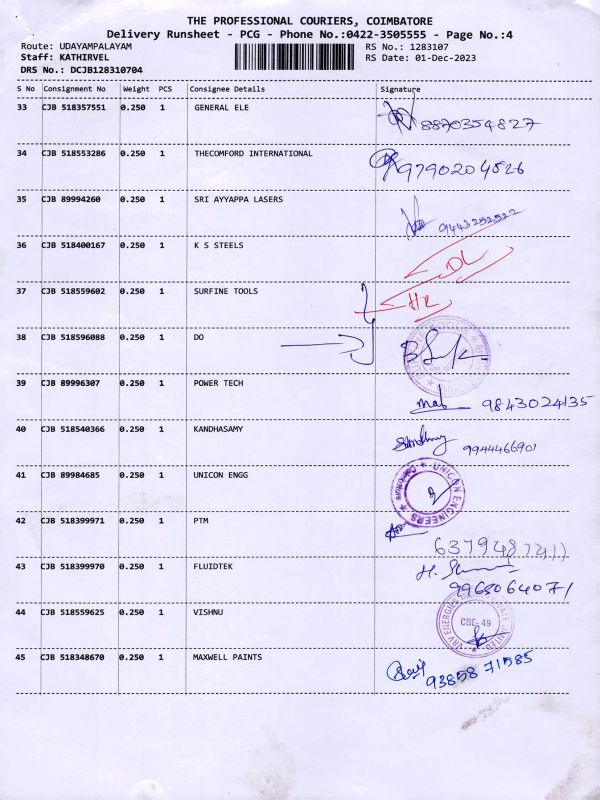 THE PROFESSIONAL COURIERS, COIMBATORE
Delivery Runsheet - PCG - Phone No.:0422-3505555 - Page No.:4
Route: UDAYAMPALAYAM
RS No.: 1283107
Staff: KATHIRVEL
RS Date: 01-Dec-2023
DRS No.: DCJB128310704
S No Consignment No Weight PCS Consignee Details Signature
33 CJB 518357551 0.250 1 GENERAL ELE
8870354827
34 CJB 518553286 0.250 1 THECOMFORD INTERNATIONAL
9790204526
35 CJB 89994260 0.250 1 SRI AYYAPPA LASERS
9443252522
36 CJB 518400167 0.250 1 K S STEELS
DL
37 CJB 518559602 0.250 1 SURFINE TOOLS
HR
38 CJB 518596088 0.250 1 DO
39 CJB 89996307 0.250 1 POWER TECH
9843024135
40 CJB 518540366 0.250 1 KANDHASAMY
9944466901
41 CJB 89984685 0.250 1 UNICON ENGG
UNICON ENGINEERS
42 CJB 518399971 0.250 1 PTM
43 CJB 518399970 0.250 1 FLUIDTEK
9965064071
44 CJB 518559625 0.250 1 VISHNU
CBE-49
45 CJB 518348670 0.250 1 MAXWELL PAINTS
93858 71585